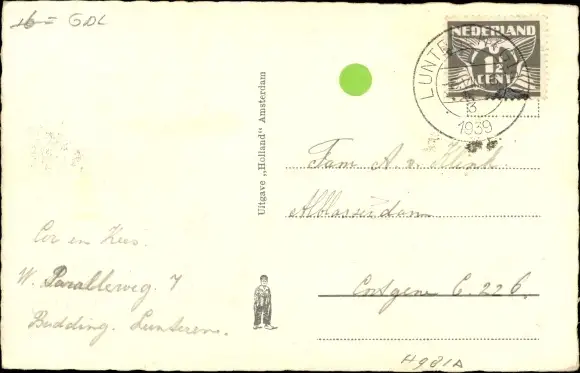 16 = GDL
NEDERLAND
1½
CENT
LUNTEREN
1939
Uitgave „Holland" Amsterdam
Fam A. v. 
Alblasserdam
C. 226.
Cor en Kees.
W. Parallelweg. 7
Budding. Lunteren.
H981A